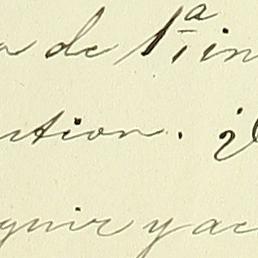 de 1ª in
ction.
guir y ac